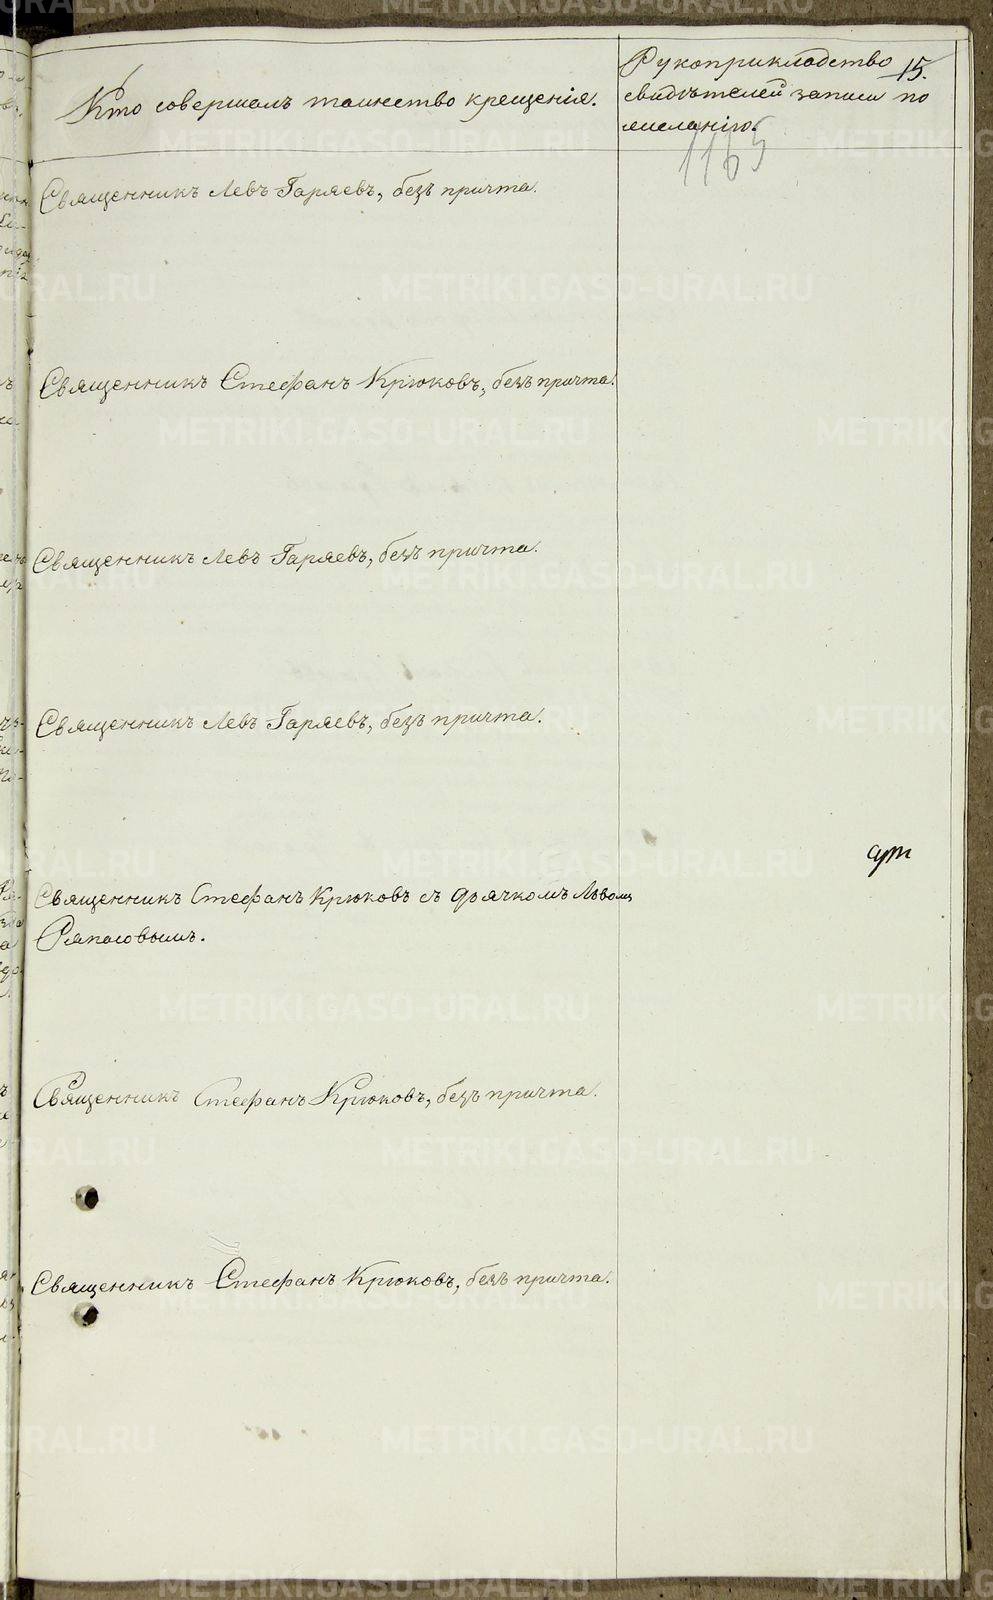 Кто совершалъ таинство крещенія.
Рукоприкладство
свидѣтелей записи по
желанію.
15.
1165
Священникъ Левъ Гаряевъ, безъ причта.
Священникъ Стефанъ Крюковъ, безъ причта.
Священникъ Левъ Гаряевъ, безъ причта.
Священникъ Левъ Гаряевъ, безъ причта.
Священникъ Стефанъ Крюковъ съ дьячкомъ Львомъ
Ряпасовымъ.
Священникъ Стефанъ Крюковъ, безъ причта.
Священникъ Стефанъ Крюковъ, безъ причта.
METRIKI.GASO-URAL.RU